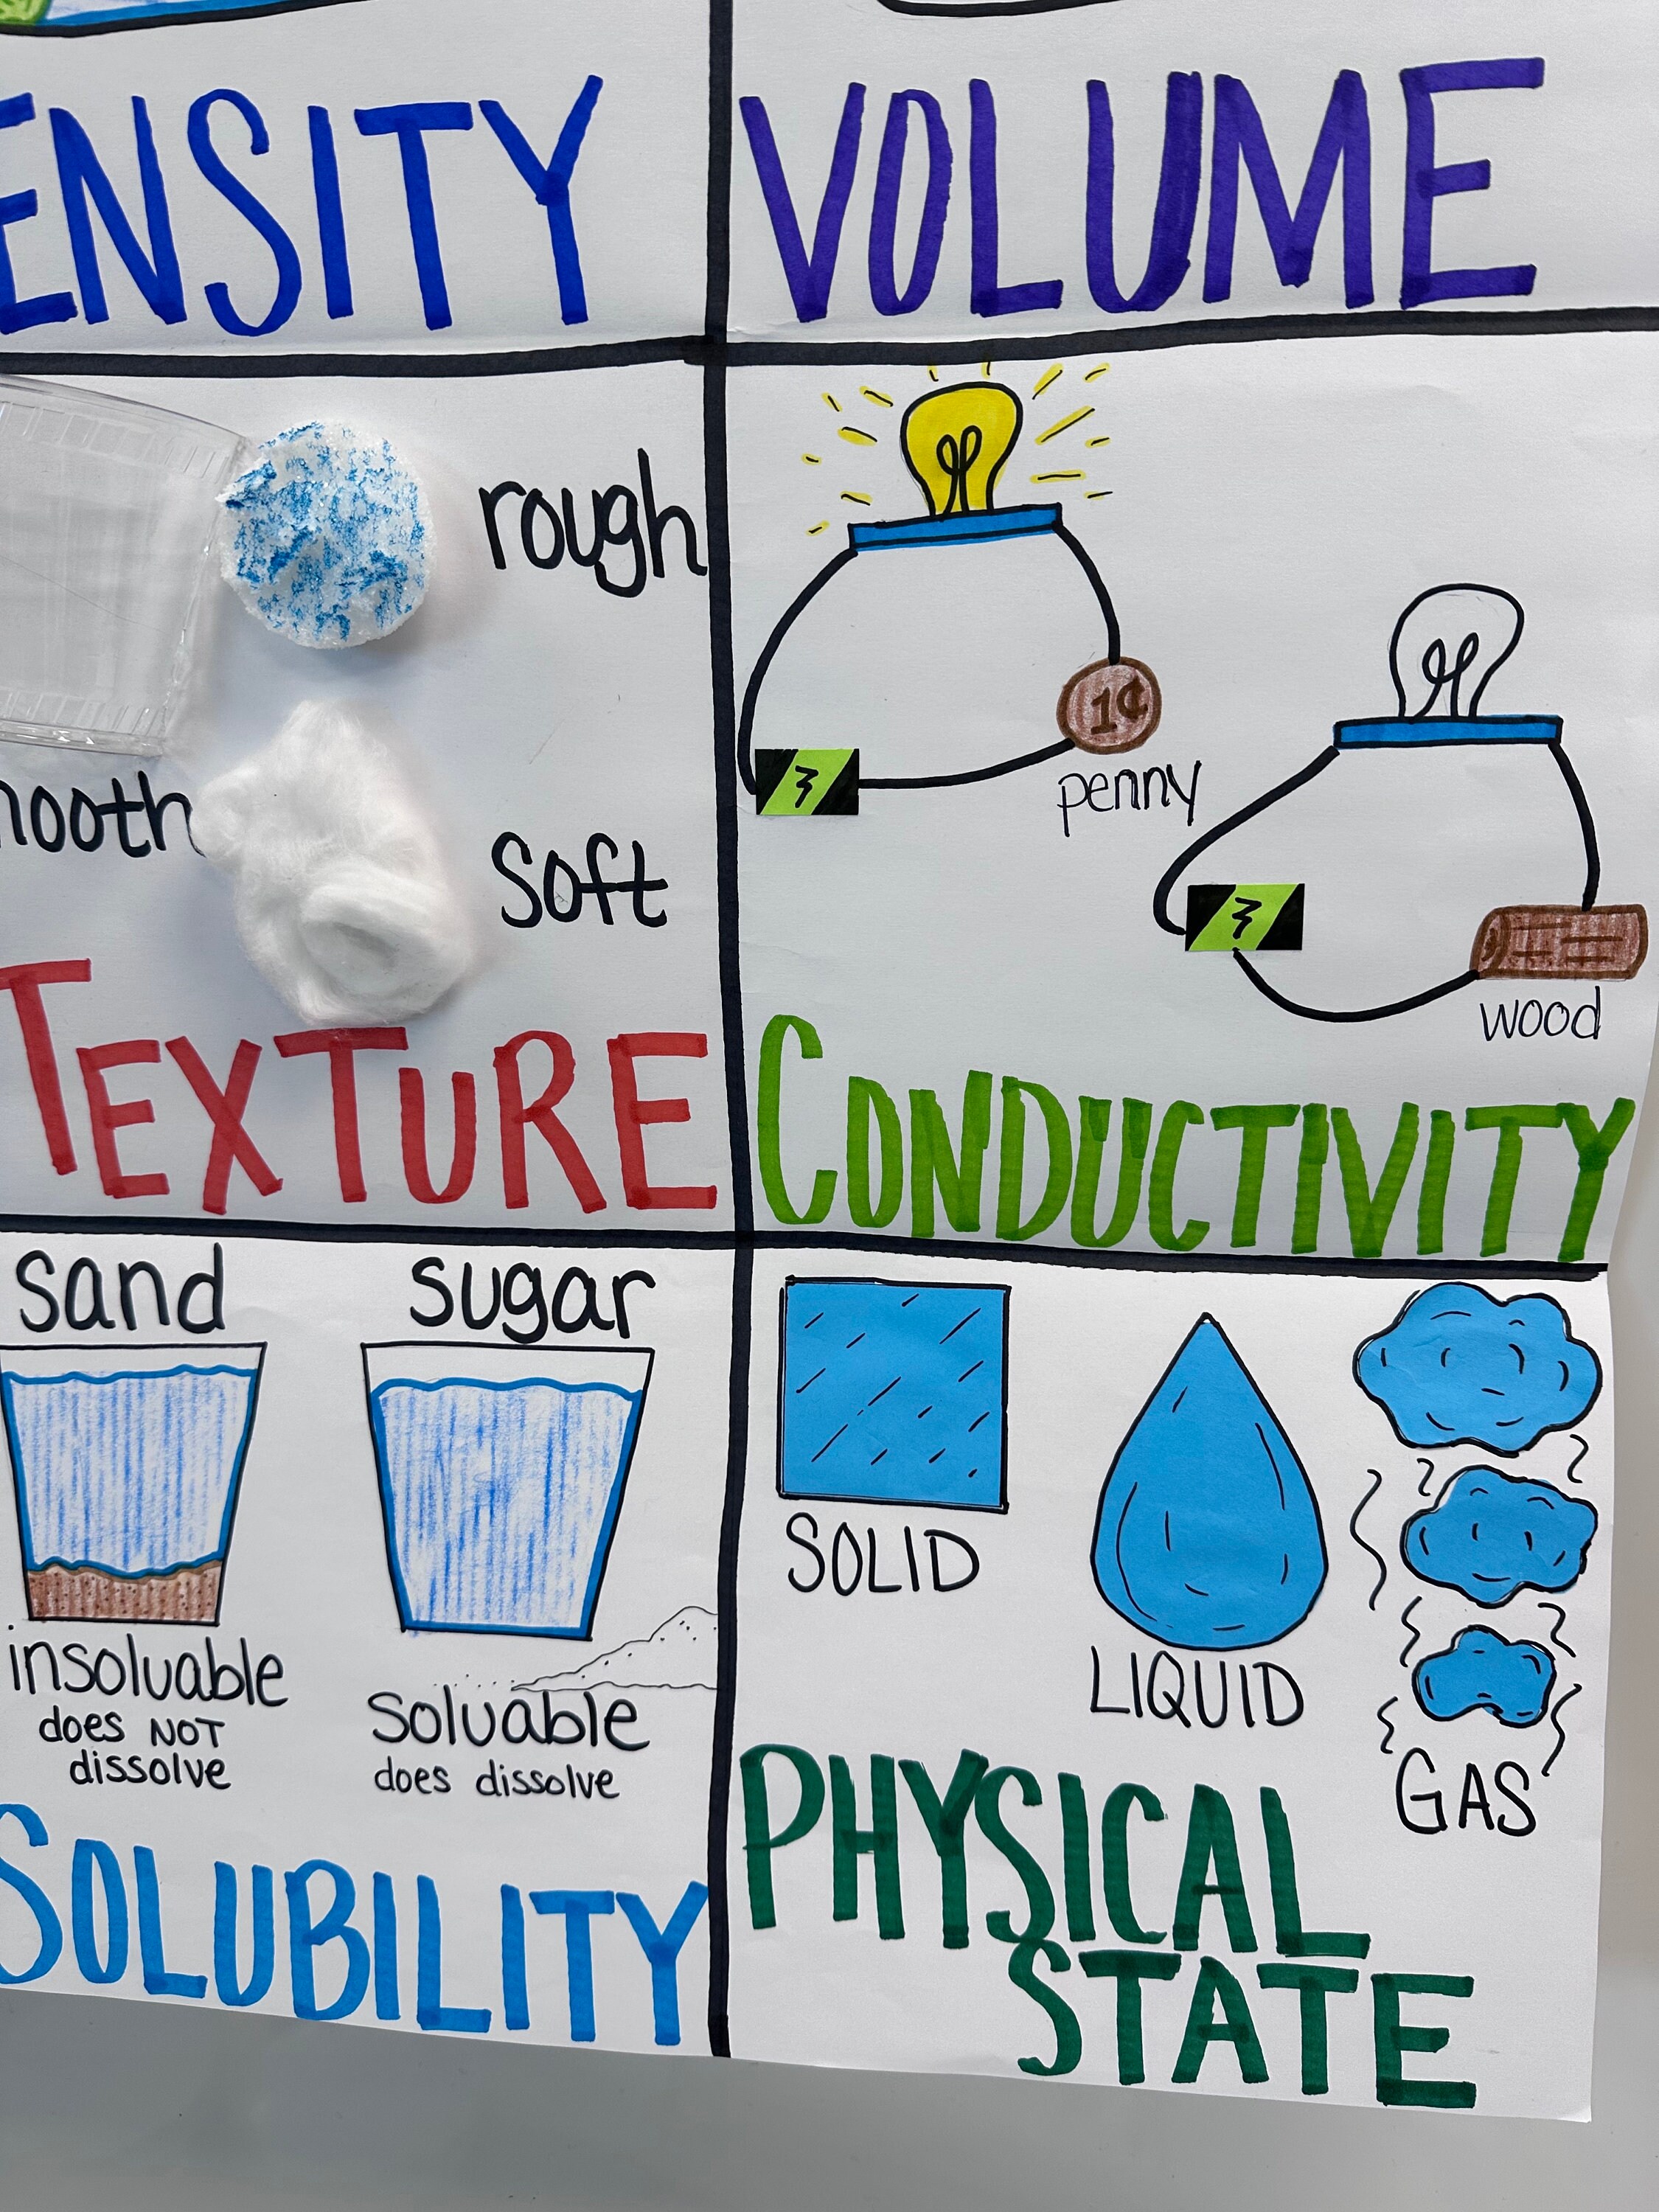 ENSITY
VOLUME
rough
mooth
Soft
TEXTURE
1¢
penny
wood
CONDUCTIVITY
sand
sugar
insoluable
does NOT
dissolve
soluable
does dissolve
SOLUBILITY
SOLID
LIQUID
GAS
PHYSICAL
STATE